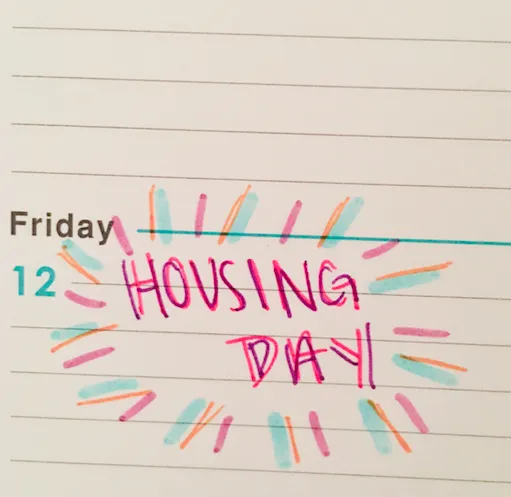 Friday
12
HOUSING
DAY